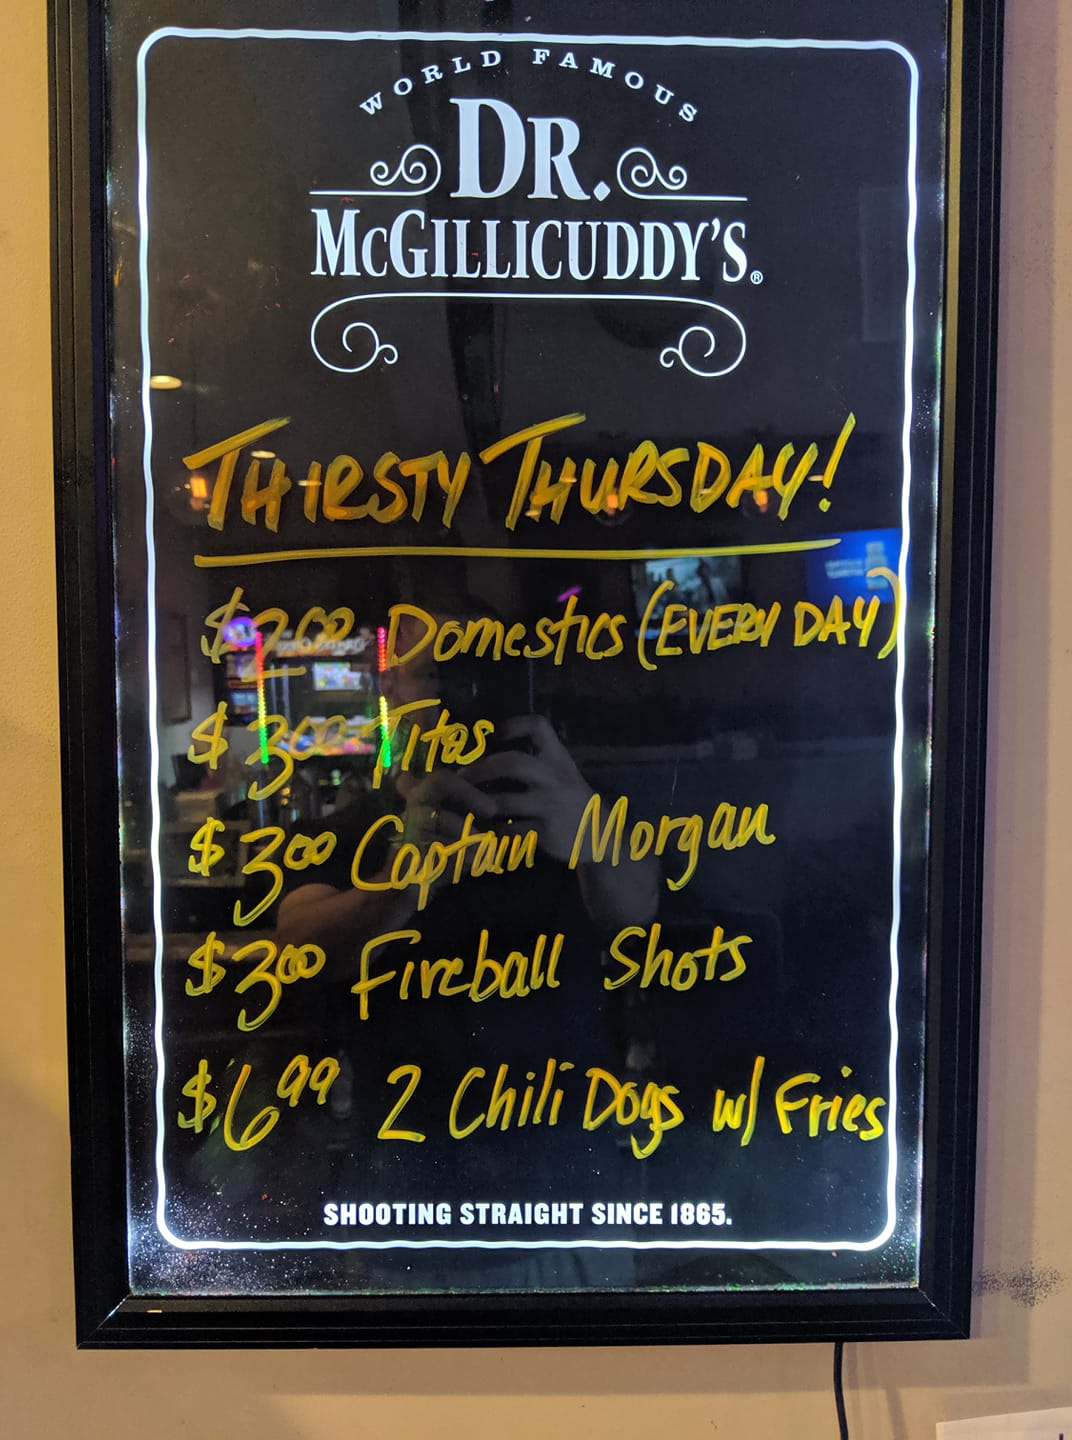 WORLD FAMOUS
DR.
MCGILLICUDDY'S®
THIRSTY THURSDAY!
$2.00 Domestics (EVERY DAY)
$3.00 Titos
$3.00 Captain Morgan
$3.00 Fireball Shots
$6.99 2 Chili Dogs w/ Fries
SHOOTING STRAIGHT SINCE 1865.